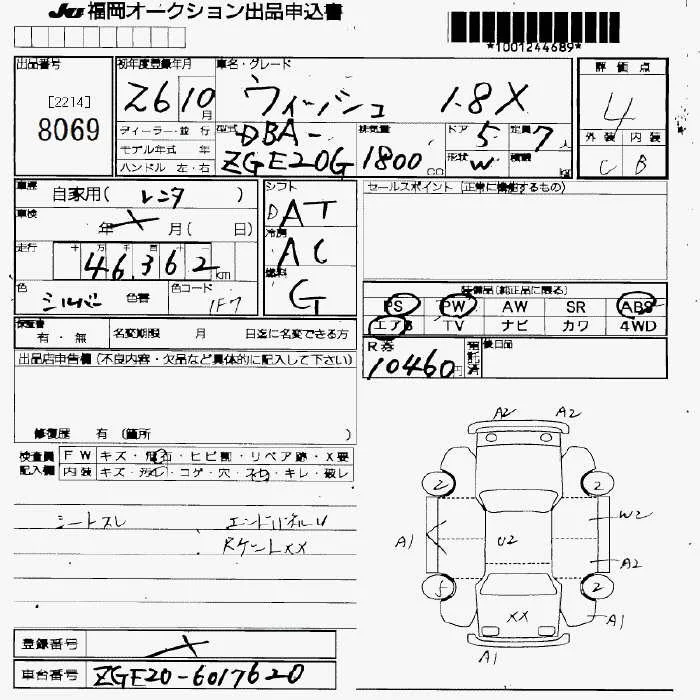 JU 福岡オークション出品申込書
*1001244689*
出品番号
[2214]
8069
初年度登録年月
26 10月
車名・グレード
ウィッシュ 1.8X
評価点
4
外装 内装
C B
ディーラー・並 行
モデル年式 年
ハンドル 左・右
型式
DBA-
ZGE20G
排気量
1800cc
ドア 5
定員 7人
形状 W
積載 kg
車歴
自家用( レンタ )
車検
年 月( 日)
走行
十 万 千 百 十 一
46362km
色
シルバー
色替
色コード
1F7
シフト
DAT
冷房
AC
燃料
G
セールスポイント (正常に機能するもの)
装備品(純正品に限る)
PS PW AW SR ABS
エアB TV ナビ カワ 4WD
保証書
有・無
名変期限 月 日迄に名変できる方
R券
10460円
後日品
出品店申告欄 (不良内容・欠品など具体的に記入して下さい)
修復歴 有 (箇所 )
検査員
記入欄
FW キズ・飛石・ヒビ割・リペア跡・X要
内装 キズ・汚レ・コゲ・穴・スレ・キレ・破レ
シートスレ
エンドパネルU
RゲートXX
A2 A2
2 2
W2
A1 U2
A2
5 2
XX
A1
A1
登録番号
車台番号
ZGE20-6017620